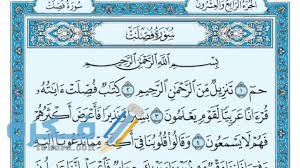 سُورَةُ فُصِّلَتْ
الجُزْءُ الرَّابِعُ وَالعِشْرُونَ
سُورَةُ فُصِّلَتْ
بِسْمِ اللَّهِ الرَّحْمَٰنِ الرَّحِيمِ
حمٓ ١ تَنزِيلٌ مِّنَ الرَّحْمَٰنِ الرَّحِيمِ ٢ كِتَٰبٌ فُصِّلَتْ ءَايَٰتُهُۥ
قُرْءَانًا عَرَبِيًّا لِّقَوْمٍ يَعْلَمُونَ ٣ بَشِيرًا وَنَذِيرًا فَأَعْرَضَ أَكْثَرُهُمْ
فَهُمْ لَا يَسْمَعُونَ ٤ وَقَالُوا۟ قُلُوبُنَا فِىٓ